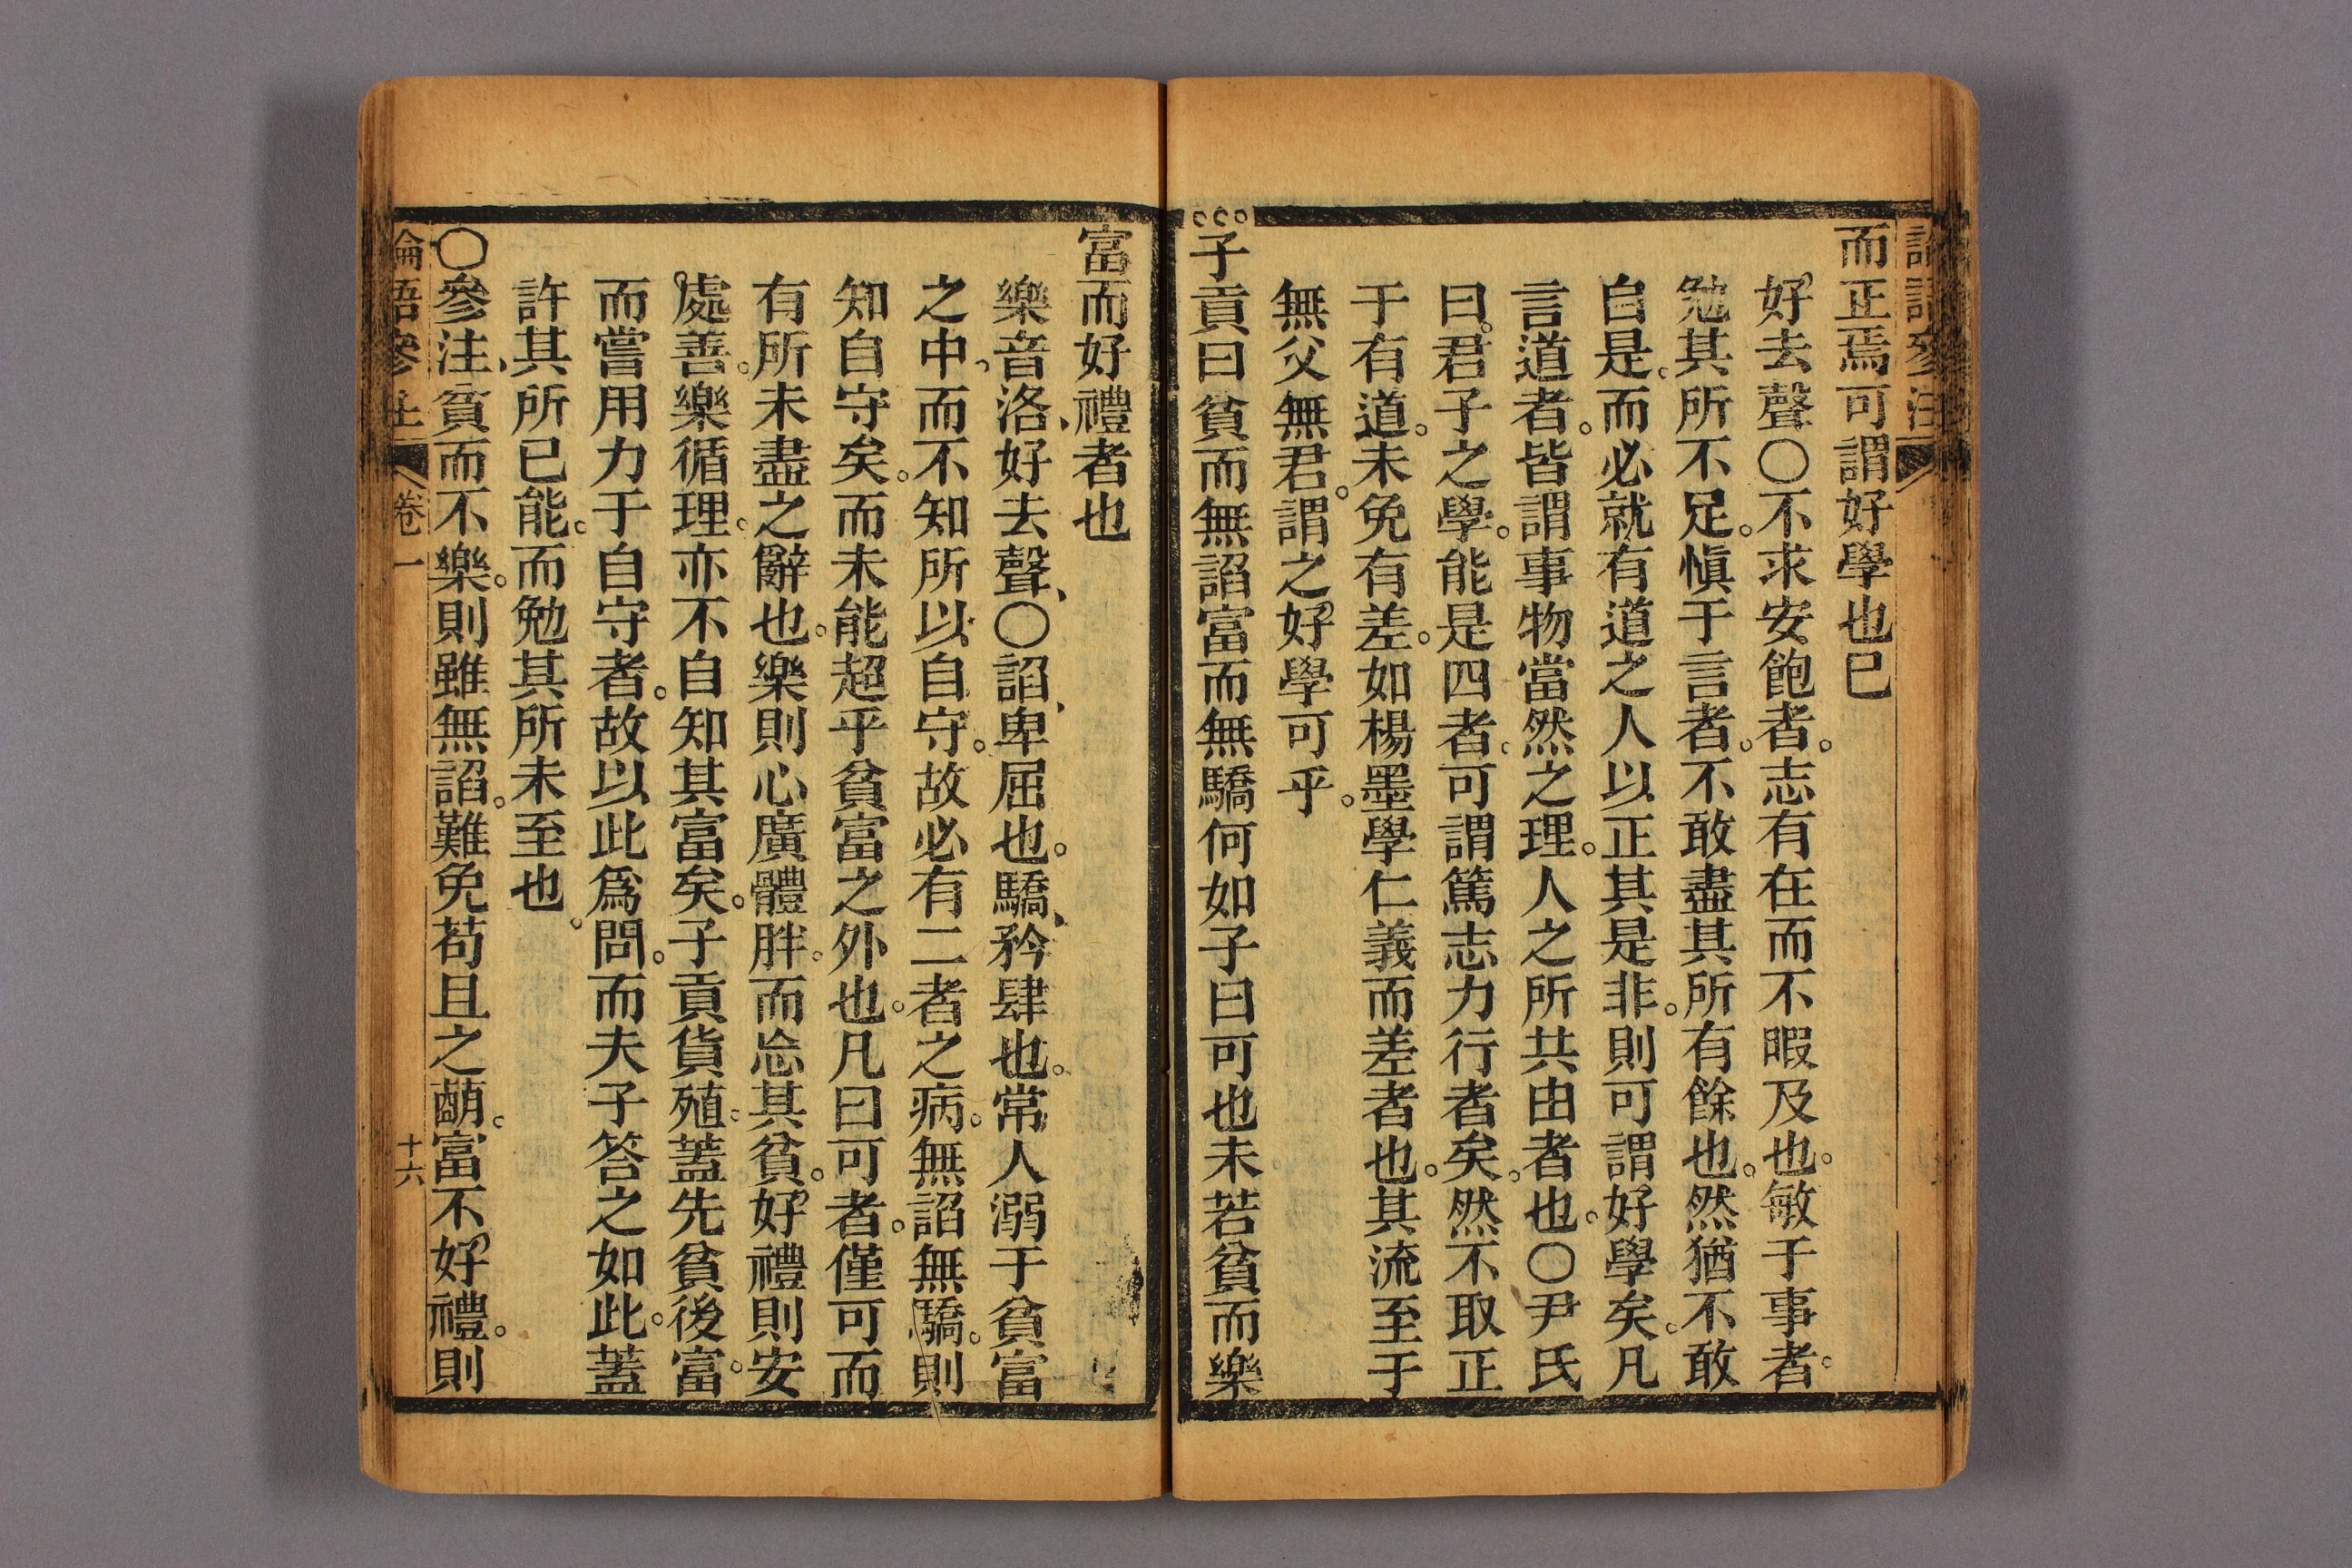 論語參注
而正焉可謂好學也已
好去聲○不求安飽者。志有在而不暇及也。敏于事者。
勉其所不足。愼于言者。不敢盡其所有餘也。然猶不敢
自是。而必就有道之人以正其是非。則可謂好學矣。凡
言道者。皆謂事物當然之理。人之所共由者也。○尹氏
曰。君子之學。能是四者。可謂篤志力行者矣。然不取正
于有道。未免有差。如楊墨學仁義而差者也。其流至于
無父無君。謂之好學可乎。
子貢曰貧而無諂富而無驕何如子曰可也未若貧而樂
富而好禮者也
樂音洛、好去聲、○諂、卑屈也。驕、矜肆也。常人溺于貧富
之中。而不知所以自守。故必有二者之病。無諂無驕。則
知自守矣。而未能超乎貧富之外也。凡曰可者。僅可而
有所未盡之辭也。樂則心廣體胖。而忘其貧。好禮則安
處善。樂循理。亦不自知其富矣。子貢貨殖。蓋先貧後富。
而嘗用力于自守者。故以此爲問。而夫子答之如此。蓋
許其所已能。而勉其所未至也。
○參注、貧而不樂。則雖無諂。難免苟且之萌。富不好禮。則
論語參注 卷一 十六